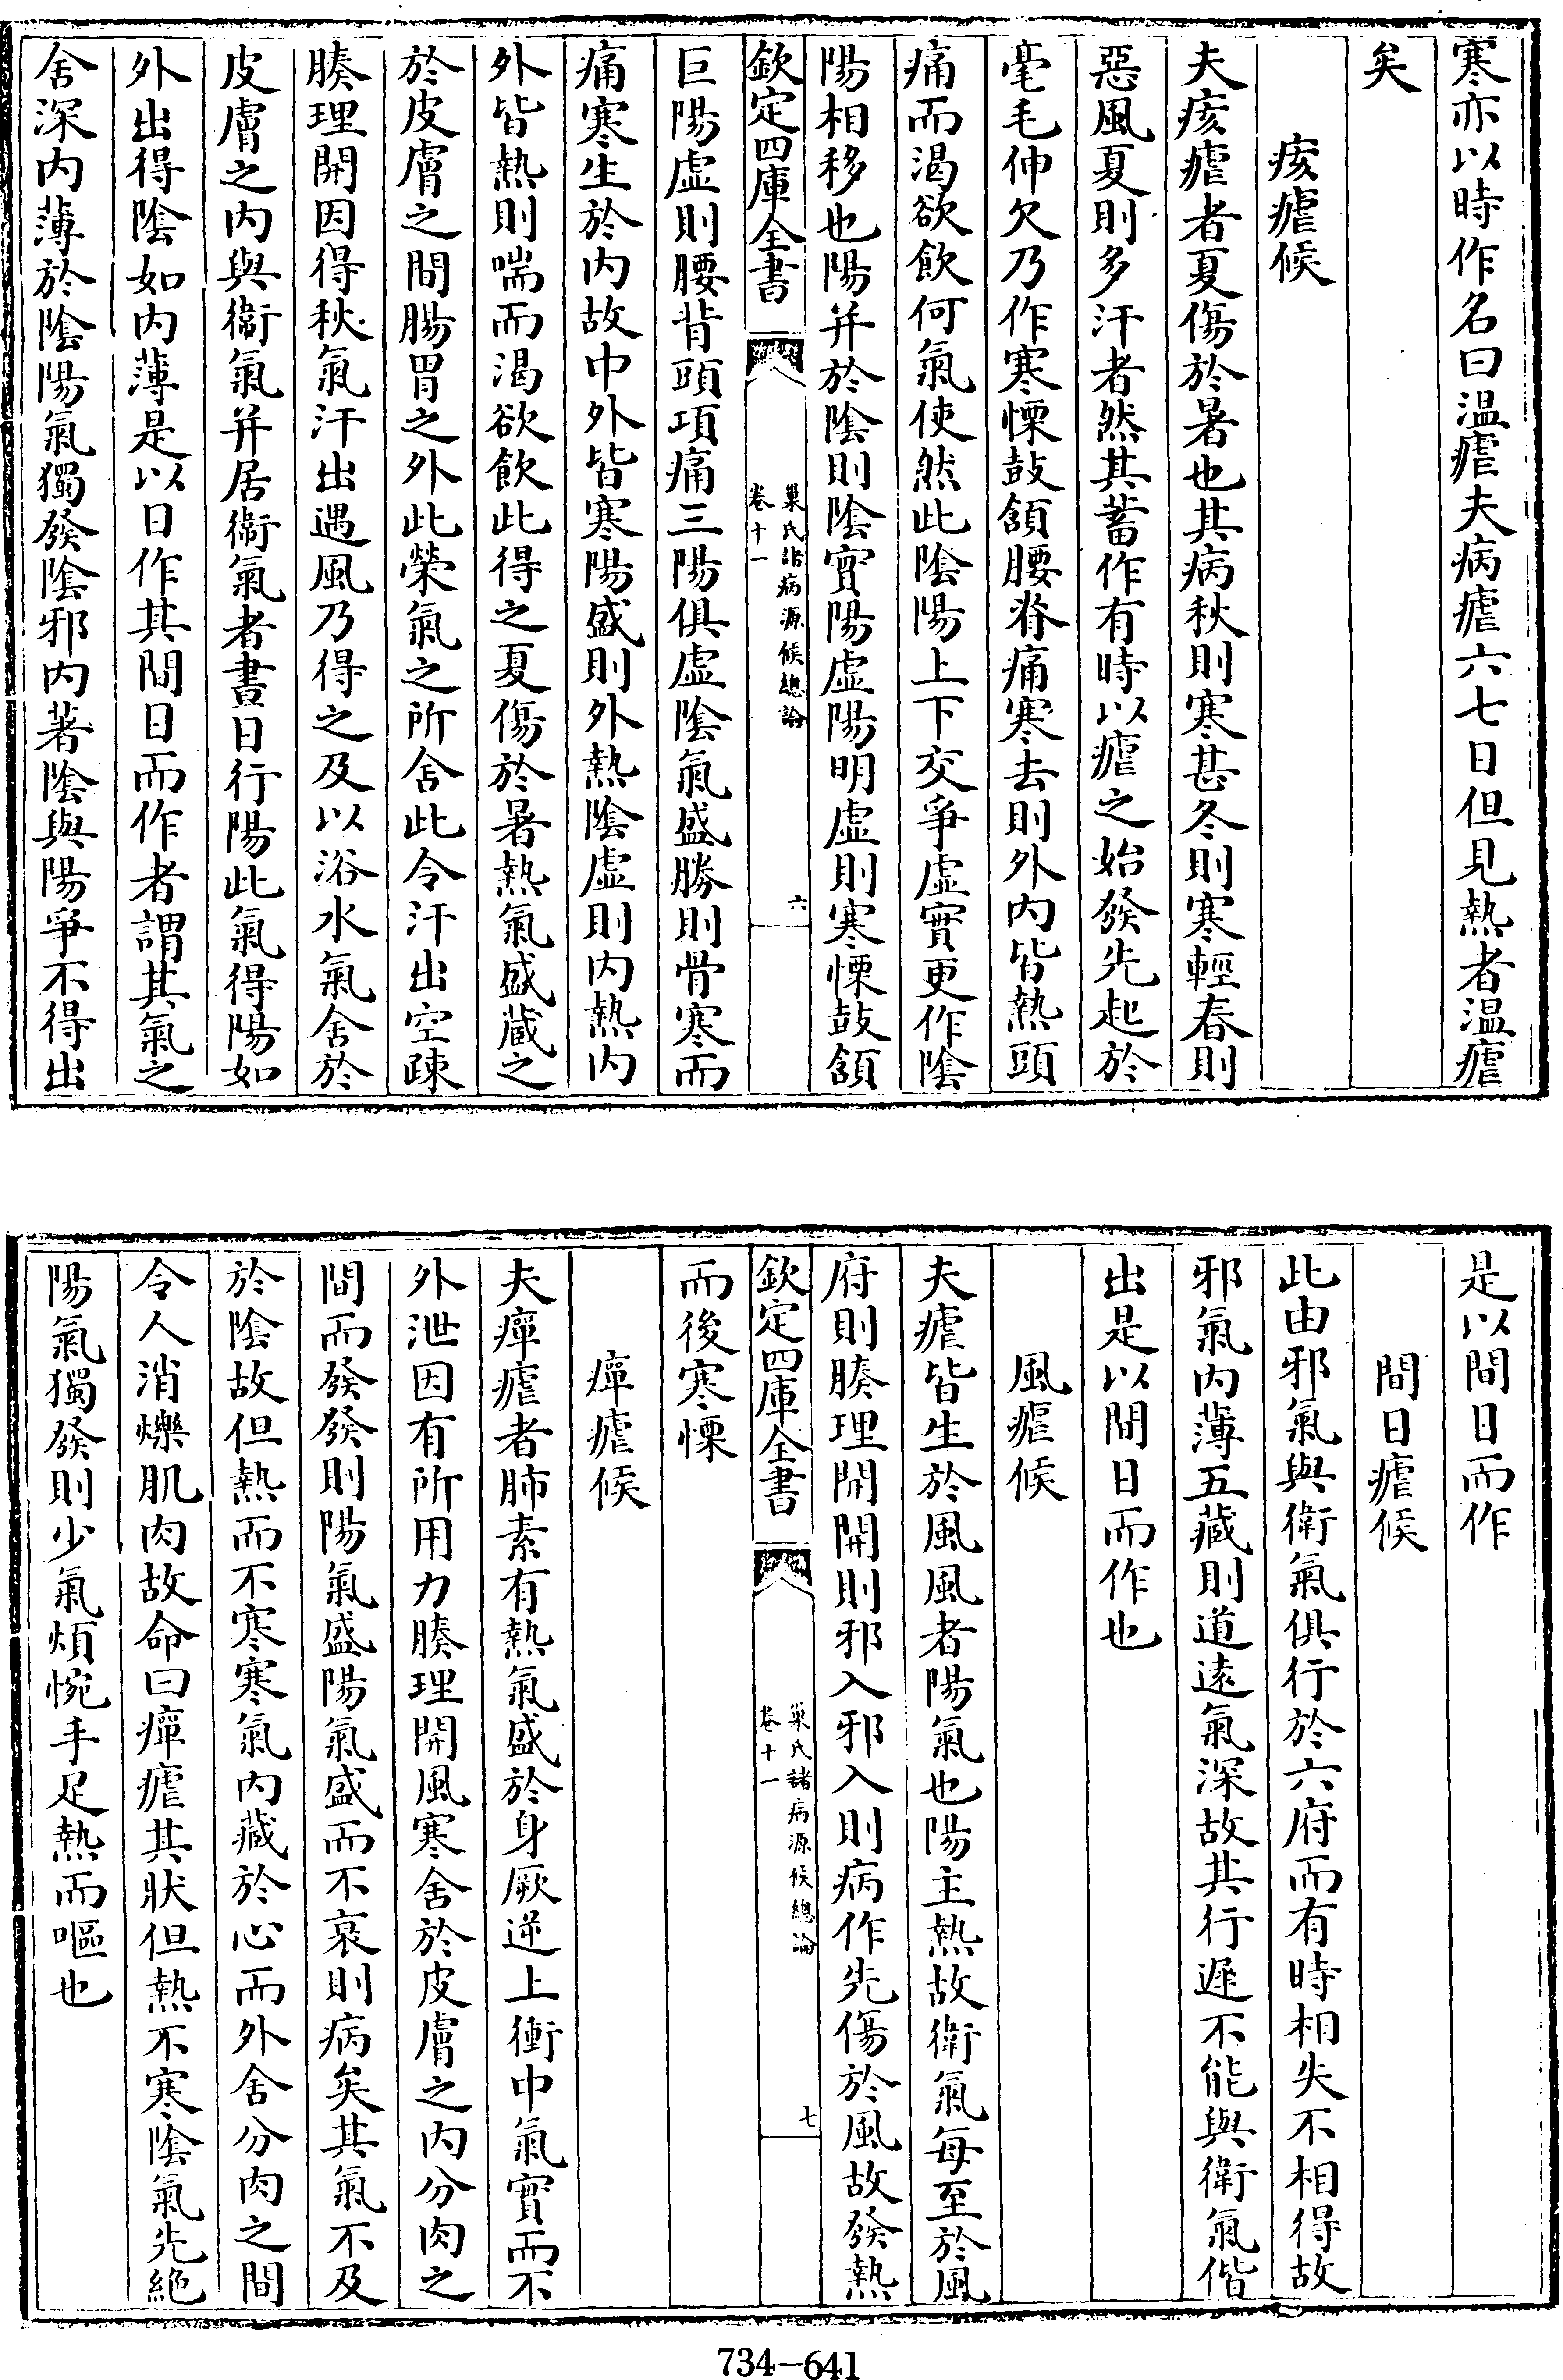 寒亦以時作名曰温瘧夫病瘧六七日但見熱者温瘧
矣
痎瘧候
夫痎瘧者夏傷於暑也其病秋則寒甚冬則寒輕春則
惡風夏則多汗者然其蓄作有時以瘧之始發先起於
毫毛伸欠乃作寒慄鼓頷腰脊痛寒去則外内皆熱頭
痛而渴欲飲何氣使然此陰陽上下交爭虛實更作陰
陽相移也陽并於陰則陰實陽虛陽明虛則寒慄鼓頷
欽定四庫全書
巢氏諸病源候總論
卷十一
六
巨陽虛則腰背頭項痛三陽俱虛陰氣盛勝則骨寒而
痛寒生於内故中外皆寒陽盛則外熱陰虛則内熱内
外皆熱則喘而渴欲飲此得之夏傷於暑熱氣盛藏之
於皮膚之間腸胃之外此榮氣之所舍此令汗出空疎
腠理開因得秋氣汗出遇風乃得之及以浴水氣舍於
皮膚之内與衞氣并居衞氣者晝日行陽此氣得陽如
外出得陰如内薄是以日作其間日而作者謂其氣之
舍深内薄於陰陽氣獨發陰邪内著陰與陽爭不得出
是以間日而作
間日瘧候
此由邪氣與衛氣俱行於六府而有時相失不相得故
邪氣内薄五藏則道遠氣深故其行遲不能與衛氣偕
出是以間日而作也
風瘧候
夫瘧皆生於風風者陽氣也陽主熱故衛氣每至於風
府則腠理開開則邪入邪入則病作先傷於風故發熱
欽定四庫全書
巢氏諸病源候總論
卷十一
七
而後寒慄
癉瘧候
夫癉瘧者肺素有熱氣盛於身厥逆上衝中氣實而不
外泄因有所用力腠理開風寒舍於皮膚之内分肉之
間而發發則陽氣盛陽氣盛而不衰則病矣其氣不及
於陰故但熱而不寒寒氣内藏於心而外舍分肉之間
令人消爍肌肉故命曰癉瘧其狀但熱不寒陰氣先絶
陽氣獨發則少氣煩惋手足熱而嘔也
734-641